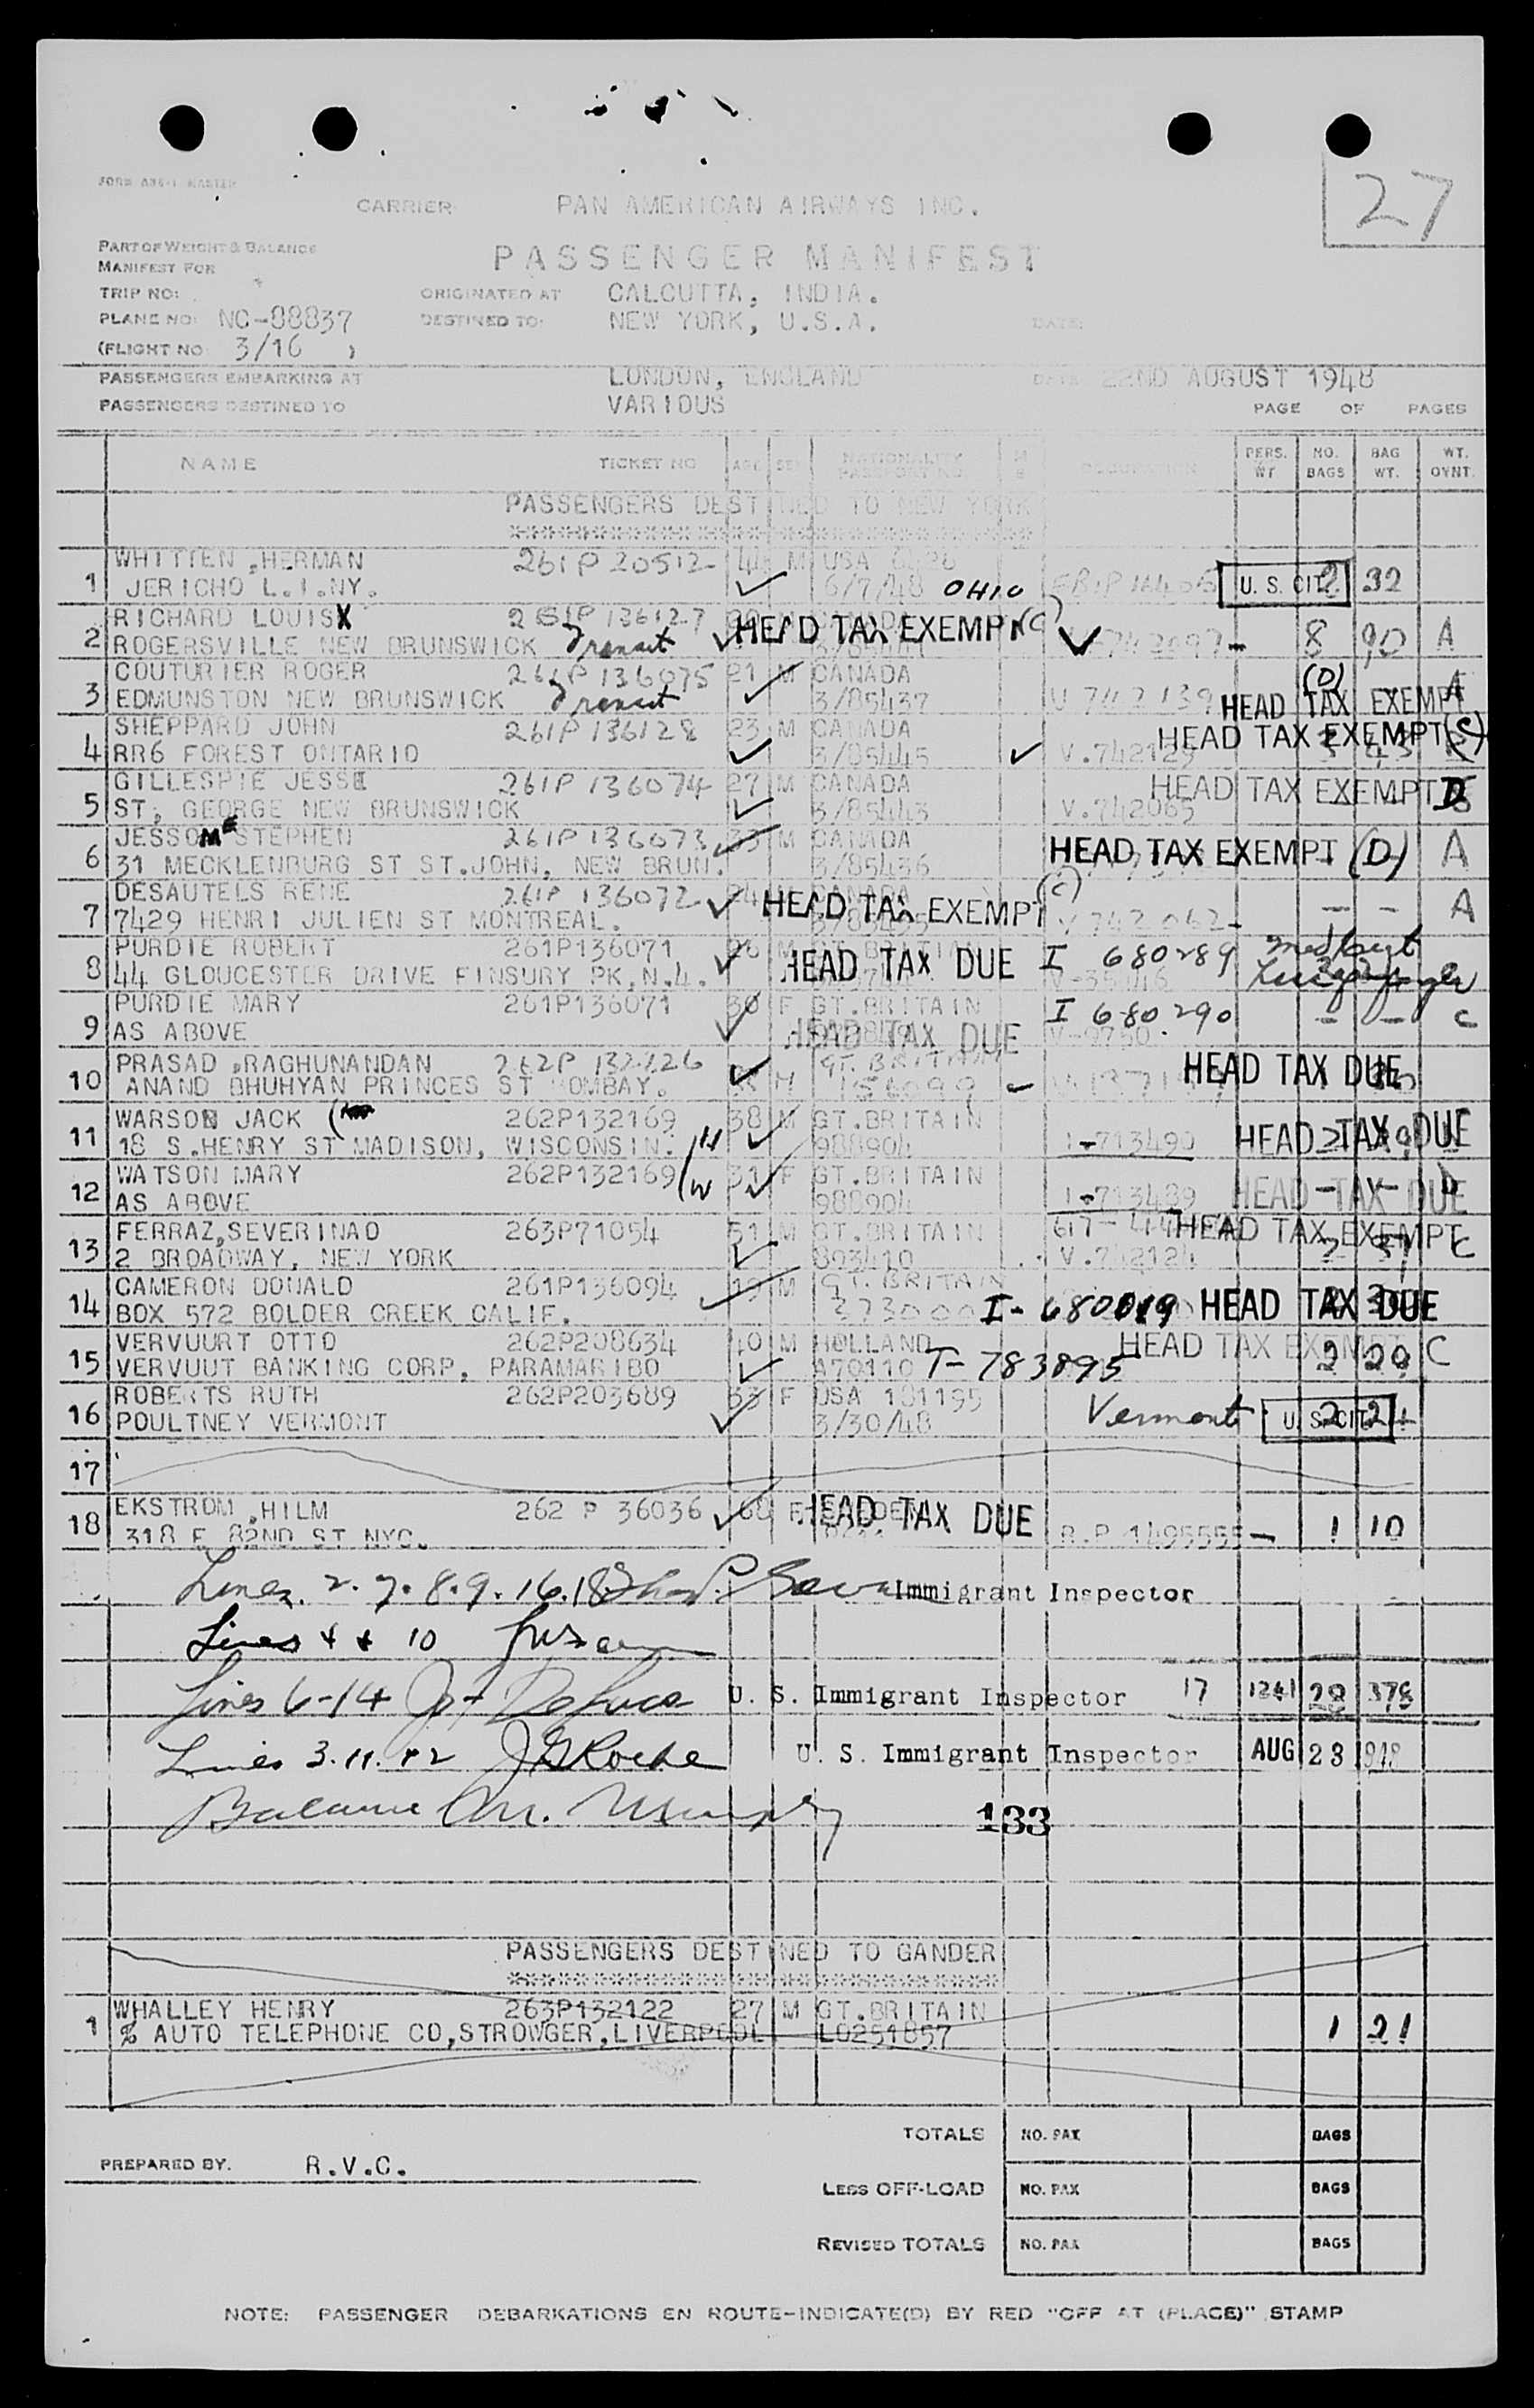 27
FORM A36-1 MASTER
CARRIER PAN AMERICAN AIRWAYS INC.
PART OF WEIGHT & BALANCE
MANIFEST FOR
PASSENGER MANIFEST
TRIP NO: ORIGINATED AT CALCUTTA, INDIA.
PLANE NO: NC-88837 DESTINED TO: NEW YORK, U.S.A. DATE:
(FLIGHT NO 3/16 )
PASSENGERS EMBARKING AT LONDON, ENGLAND DATE 22ND AUGUST 1948
PASSENGERS DESTINED TO VARIOUS PAGE OF PAGES
NAME TICKET NO AGE SEX NATIONALITY PASSPORT NO OCCUPATION PERS. WT NO. BAGS BAG WT. WT. OVNT.
PASSENGERS DESTINED TO NEW YORK
WHITTEN, HERMAN 261P 20512 M USA
1 JERICHO L.I.NY. 6/7/48 OHIO U. S. CIT. 2 32
RICHARD LOUIS 261P 136127 HEAD TAX EXEMPT (C)
2 ROGERSVILLE NEW BRUNSWICK Transit 8 90 A
COUTURIER ROGER 261P 136075 21 M CANADA
3 EDMUNSTON NEW BRUNSWICK Transit 3/85437 V 742139 HEAD TAX EXEMPT (D) A
SHEPPARD JOHN 261P 136128 23 M CANADA
4 RR6 FOREST ONTARIO 3/85445 V.742125 HEAD TAX EXEMPT (C)
GILLESPIE JESSE 261P 136074 27 M CANADA
5 ST. GEORGE NEW BRUNSWICK 3/85443 V.742065 HEAD TAX EXEMPT D
JESSOME STEPHEN 261P 136073 33 M CANADA
6 31 MECKLENBURG ST ST.JOHN, NEW BRUN. 3/85436 HEAD TAX EXEMPT (D) A
DESAUTELS RENE 261P 136072 24 CANADA
7 7429 HENRI JULIEN ST MONTREAL. HEAD TAX EXEMPT (C) V 742062 - - A
PURDIE ROBERT 261P136071 M
8 44 GLOUCESTER DRIVE FINSURY PK,N.4. HEAD TAX DUE I 680289
PURDIE MARY 261P136071 30 F GT.BRITAIN I 680290
9 AS ABOVE HEAD TAX DUE V-9750. - - C
PRASAD, RAGHUNANDAN 262P 132226 GT. BRITAIN
10 ANAND BHUHYAN PRINCES ST BOMBAY. M HEAD TAX DUE
WARSON JACK 262P132169 38 M GT.BRITAIN
11 18 S.HENRY ST MADISON, WISCONSIN. H 988904 I-713490 HEAD TAX DUE
WATSON MARY 262P132169 W 31 F GT.BRITAIN
12 AS ABOVE 988904 I-713489 HEAD TAX DUE
FERRAZ,SEVERINAO 263P71054 51 M GT.BRITAIN
13 2 BROADWAY, NEW YORK 803410 V.742124 HEAD TAX EXEMPT C
CAMERON DONALD 261P136094 19 M GT. BRITAIN
14 BOX 572 BOLDER CREEK CALIF. I- 680019 HEAD TAX DUE
VERVUURT OTTO 262P208634 40 M HOLLAND
15 VERVUUT BANKING CORP, PARAMARIBO A70110 T-783895 HEAD TAX EXEMPT 2 29 C
ROBERTS RUTH 262P203689 53 F USA 101195
16 POULTNEY VERMONT 3/30/48 Vermont U. S. CIT.
17
EKSTROM, HILM 262 P 36036 60 F HEAD TAX DUE
18 318 E 82ND ST NYC. R.P 1495555 - 1 10
Lines. 2. 7. 8. 9. 16. 18 Immigrant Inspector
Lines 4 & 10
Lines 6-14 U. S. Immigrant Inspector 17 1241 28 378
Lines 3. 11. 12 J G Roche U. S. Immigrant Inspector AUG 23 1948
Balance M. Murphy 133
PASSENGERS DESTINED TO GANDER
WHALLEY HENRY 263P132122 27 M GT.BRITAIN
1 % AUTO TELEPHONE CO,STROWGER,LIVERPOOL L0251857 1 21
TOTALS NO. PAX BAGS
PREPARED BY. R.V.C.
LESS OFF-LOAD NO. PAX BAGS
REVISED TOTALS NO. PAX BAGS
NOTE: PASSENGER DEBARKATIONS EN ROUTE-INDICATE(D) BY RED "OFF AT (PLACE)" STAMP